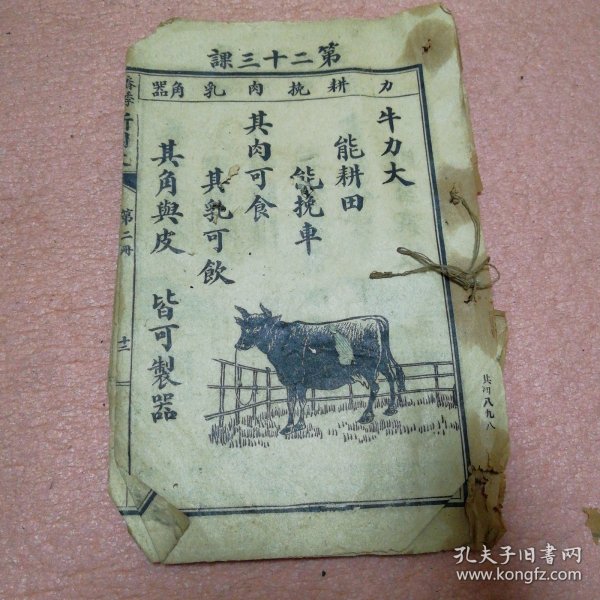 第二十三課
力 耕 挽 肉 乳 角 器
牛力大
能耕田
能挽車
其肉可食
其乳可飲
其角與皮 皆可製器
第二冊
十二
孔夫子旧书网
www.kongfz.com